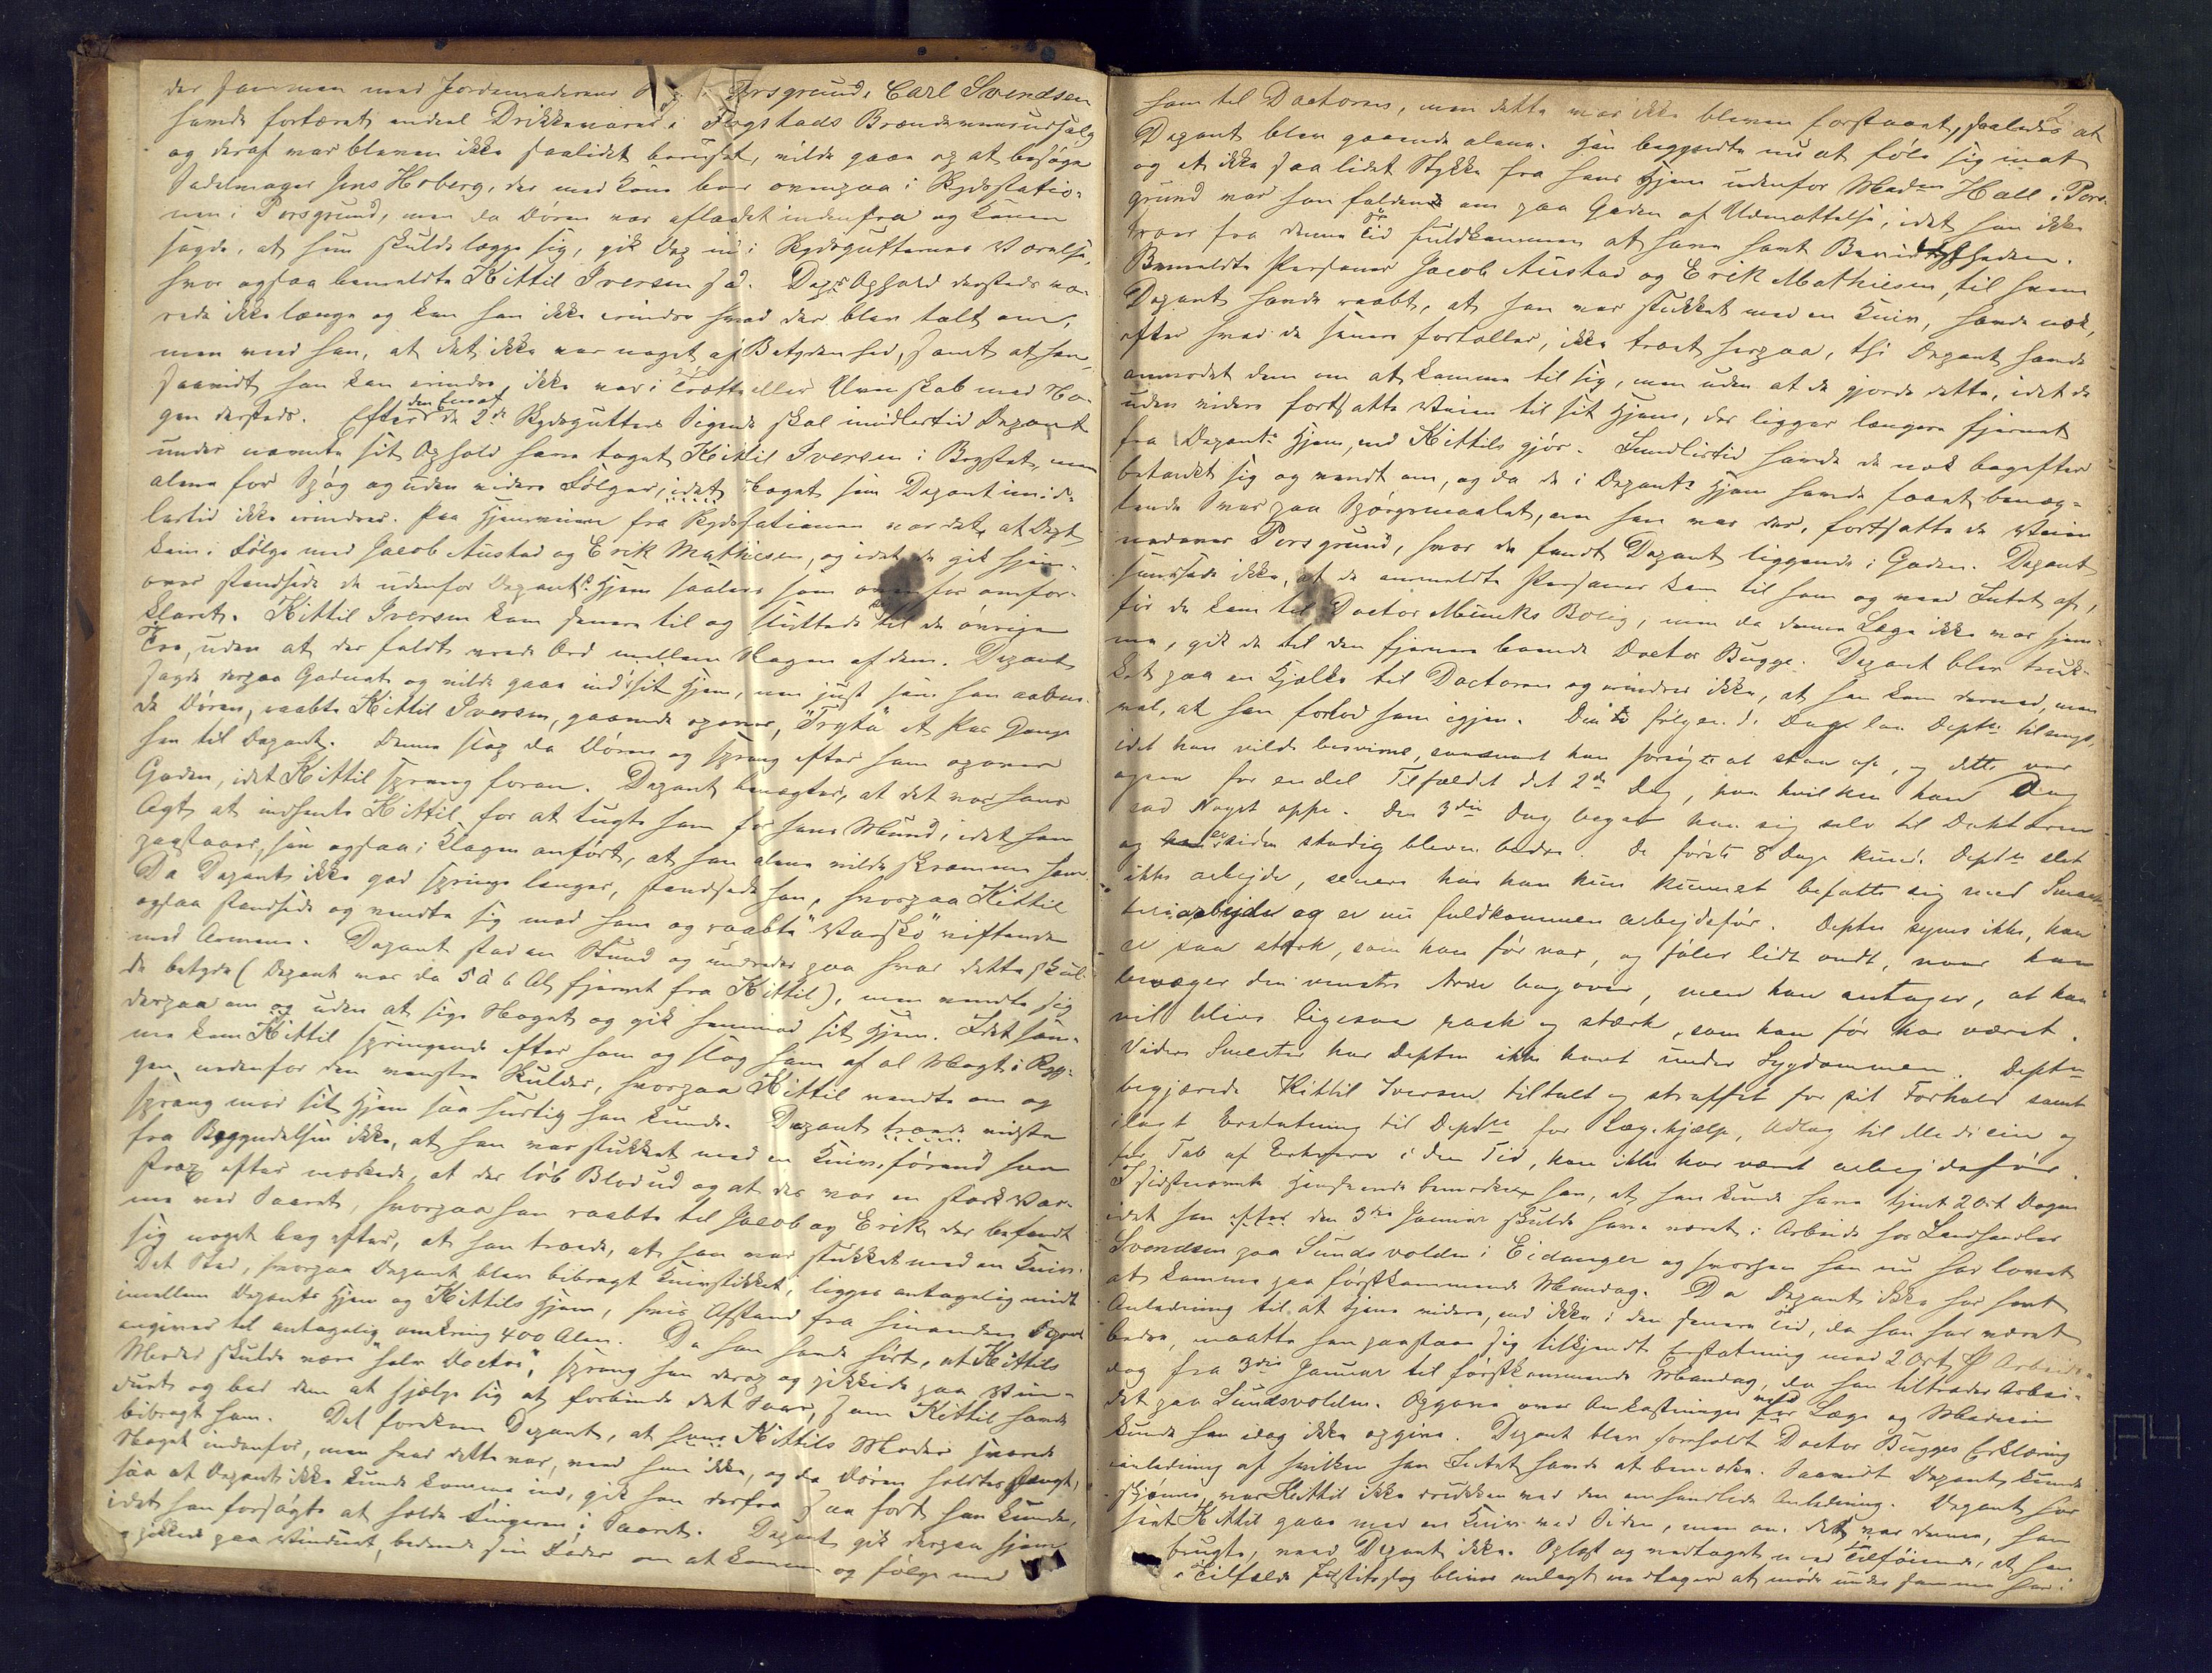 der sammen med Jordemoderens i Porsgrund, Carl Svendsen
havde fortæret endeel Drikkevarer i Fogstads Brændeviinsudsalg
og deraf var bleven ikke saalidet beruset, vilde gaae op at besøge
Sadelmager Jens Hoberg, der med Kone bor ovenpaa i Skydsstatio-
nen i Porsgrund, men da Døren var aflaaset indenfra og Konen
sagde, at hun skulde lægge sig, gik Dep ind i Skydsgutternes Værelse,
hvor ogsaa bemeldte Kittil Iversen sad. Depts Ophold dersteds va-
rede ikke længe og kan han ikke erindre hvad der blev talt om,
men veed han, at det ikke var noget af Betydenhed, samt at han
saavidt han kan erindre, ikke var i Trætte eller Uvenskab med No-
gen dersteds. Efter den Enes af de 2de Skydsgutters Sigende skal imidlertid Deponent
under nævnte sit Ophold have taget Kittil Iversen i Brystet, men
alene for Spøg og uden videre Følger, idet Noget som Deponent imid-
lertid ikke erindrer. Paa Hjemveien fra Skydsstationen var det, at Dept
kom i Følge med Jacob Austad og Erik Mathiesen, og idet de gik hjem-
over standsede de udenfor Deponents Hjem saaledes som ovenfor omfor-
klaret. Kittil Iversen kom senere til og sluttede sig til de øvrige
Tre, uden at der faldt vrede Ord mellem Nogen af dem. Deponent
sagde derpaa Godnat og vilde gaae ind i sit Hjem, men just som han aabne-
de Døren, raabte Kittil Iversen, gaaende opover, "Tryta" et Par Gange
hen til Deponent. Denne slap da Døren og sprang efter ham opover
Gaden, idet Kittil sprang foran. Deponent benægter, at det var hans
Agt at indhente Kittil for at tugte ham for hans Mund, idet han
paastaaer, som ogsaa i Klagen anført, at han alene vilde skræmme ham.
Da Deponent ikke gad springe længer, standsede han, hvorpaa Kittil
ogsaa standsede og vendte sig mod ham og raabte "Varsko" viftende
med Armene. Deponent stod en Stund og undredes paa hvad dette skul-
de betyde (Deponent var da 5 à 6 Al fjernet fra Kittil), men vendte sig
derpaa om og uden at sige Noget og gik henimod sit Hjem. Idet sam-
me kom Kittil springende efter ham og slog ham af al Magt i Ryg-
gen nedenfor den venstre Skulder, hvorpaa Kittil vendte om og
sprang mod sit Hjem saa hurtig han kunde. Deponent troede vidste
fra Begyndelsen ikke, at han var stukket med en Kniv, førend han
strax efter mærkede, at der løb Blod ud og at der var en stærk Var-
me ved Saaret, hvorpaa han raabte til Jacob og Erik, der befandt
sig noget bag efter, at han troede, at han var stukket med en Kniv.
Det Sted, hvorpaa Deponent blev bibragt Knivstikket, ligger antagelig midt
imellem Deponents Hjem og Kittils Hjem, hvis Afstand fra hinanden Deponent
angiver til antagelig omkring 400 Alen. Da han havde hørt, at Kittils
Moder skulde være "halv Doctor", sprang han derop og pikkede paa Vin-
duet og bad dem at hjælpe sig at forbinde det Saar, som Kittil havde
bibragt ham. Det forekom Deponent, at hans Kittils Moder svarede
Noget indenfor, men hvad dette var, veed han ikke, og da Døren holdtes stængt,
saa at Deponent ikke kunde komme ind, gik han derfra saa fort han kunde,
idet han forsøgte at holde Fingeren i Saaret. Deponent gik derpaa hjem
og pikkede paa Vinduet, bedende sin Fader om at komme og følge med
2
ham til Doctoren, men dette var ikke bleven forstaaet, saaledes at
Deponent blev gaaende alene. Han begyndte nu at føle sig mat
og et ikke saa lidet Stykke fra hans Hjem udenfor Madm Hall i Pors-
grund var han faldende om paa Gaden af Udmattelse, idet han ikke
troer fra denne Tid fuldkommen at have havt Bevidstheden.
Bemeldte Personer Jacob Austad og Erik Mathiesen, til hvem
Deponent havde raabt, at han var stukket med en Kniv, havde nok,
efter hvad de senere fortæller, ikke troet herpaa, thi Deponent havde
anmodet dem om at komme til sig, men uden at de gjorde dette, idet de
uden videre fortsatte Veien til sit Hjem, der ligger længere fjernet
fra Deponents Hjem, end Kittils gjør. Imidlertid havde de nok bagefter
betænkt sig og vendt om, og da de i Deponents Hjem havde faaet benæg-
tende Svar paa Spørgsmaalet, om han var der, fortsatte de Veien
nedover Porsgrund, hvor de fandt Deponent liggende i Gaden. Deponent
sandsede ikke, at de anmeldte Personer kom til ham og veed Intet af,
før de kom til Doctor Muncks Bolig, men da denne Læge ikke var hjem-
me, gik de til den fjernere boende Doctor Bugge. Deponent blev truk-
ket paa en Kjælke til Doctoren og erindrer ikke, at han kom dermed, men
vel, at han forlod ham igjen. Den to følgende Dage laa Depten tilsengs,
idet han vilde besvime, saasnart han forsøgte at staa op, og dette var
ogsaa for endel Tilfældet det 2den Dag, paa hvilken han dog
sad Noget oppe. Den 3die Dag begav han sig selv til Doktoren
og er siden stadig bleven bedre. De første 8 Dage kunde Depten slet
ikke arbejde, senere har han kun kunnet befatte sig med Smaa-
arbejde og er nu fuldkommen arbejdsfør. Depten synes ikke, han
er saa stærk, som han før var, og føler lidt ondt, naar han
bevæger den venstre Arm bagover, men han antager, at han
vil blive ligesaa rask og stærk, som han før har været.
Videre Smerter har Depten ikke havt under Sygdommen. Depten
begjærede Kittil Iversen tiltalt og straffet for sit Forhold samt
ilagt Erstatning til Depten for Lægehjælp, Udlæg til Medicin og
for Tab af Erhverv i den Tid, han ikke har været arbejdsfør.
I sidstnævnte Henseende bemærker han, at han kunde have tjent 2 Ort Dagen
idet han efter den 3die Januar skulde have været i Arbeide hos Landhandler
Svendsen paa Sundsvolden i Eidanger og hvorhen han nu har lovet
at komme paa førstkommende Mandag. Da Deponent ikke har havt
Anledning til at tjene videre, end ikke i den senere Tid, da han har været
bedre, maatte han paastaae sig tilkjendt Erstatning med 2 Ort pr Arbeids-
dag fra 3die Januar til førstkommende Mandag, da han tiltræder Arbei-
det paa Sundsvolden. Opgave over Omkostninger med Læge og Medicin
kunde han idag ikke opgive. Deponent blev foreholdt Doctor Bugges Erklæring
i Anledning af hvilken han Intet havde at bemærke. Saavidt Deponent kunde
skjønne, var Kittil ikke drukken ved den omhandlede Anledning. Deponent har
seet Kittil gaae med en Kniv ved Siden, men om det var denne, han
brugte, veed Deponent ikke. Oplæst og vedtaget med Tilføiende, at han
i Tilfælde Justitssag bliver anlagt vedtager at møde under samme her i